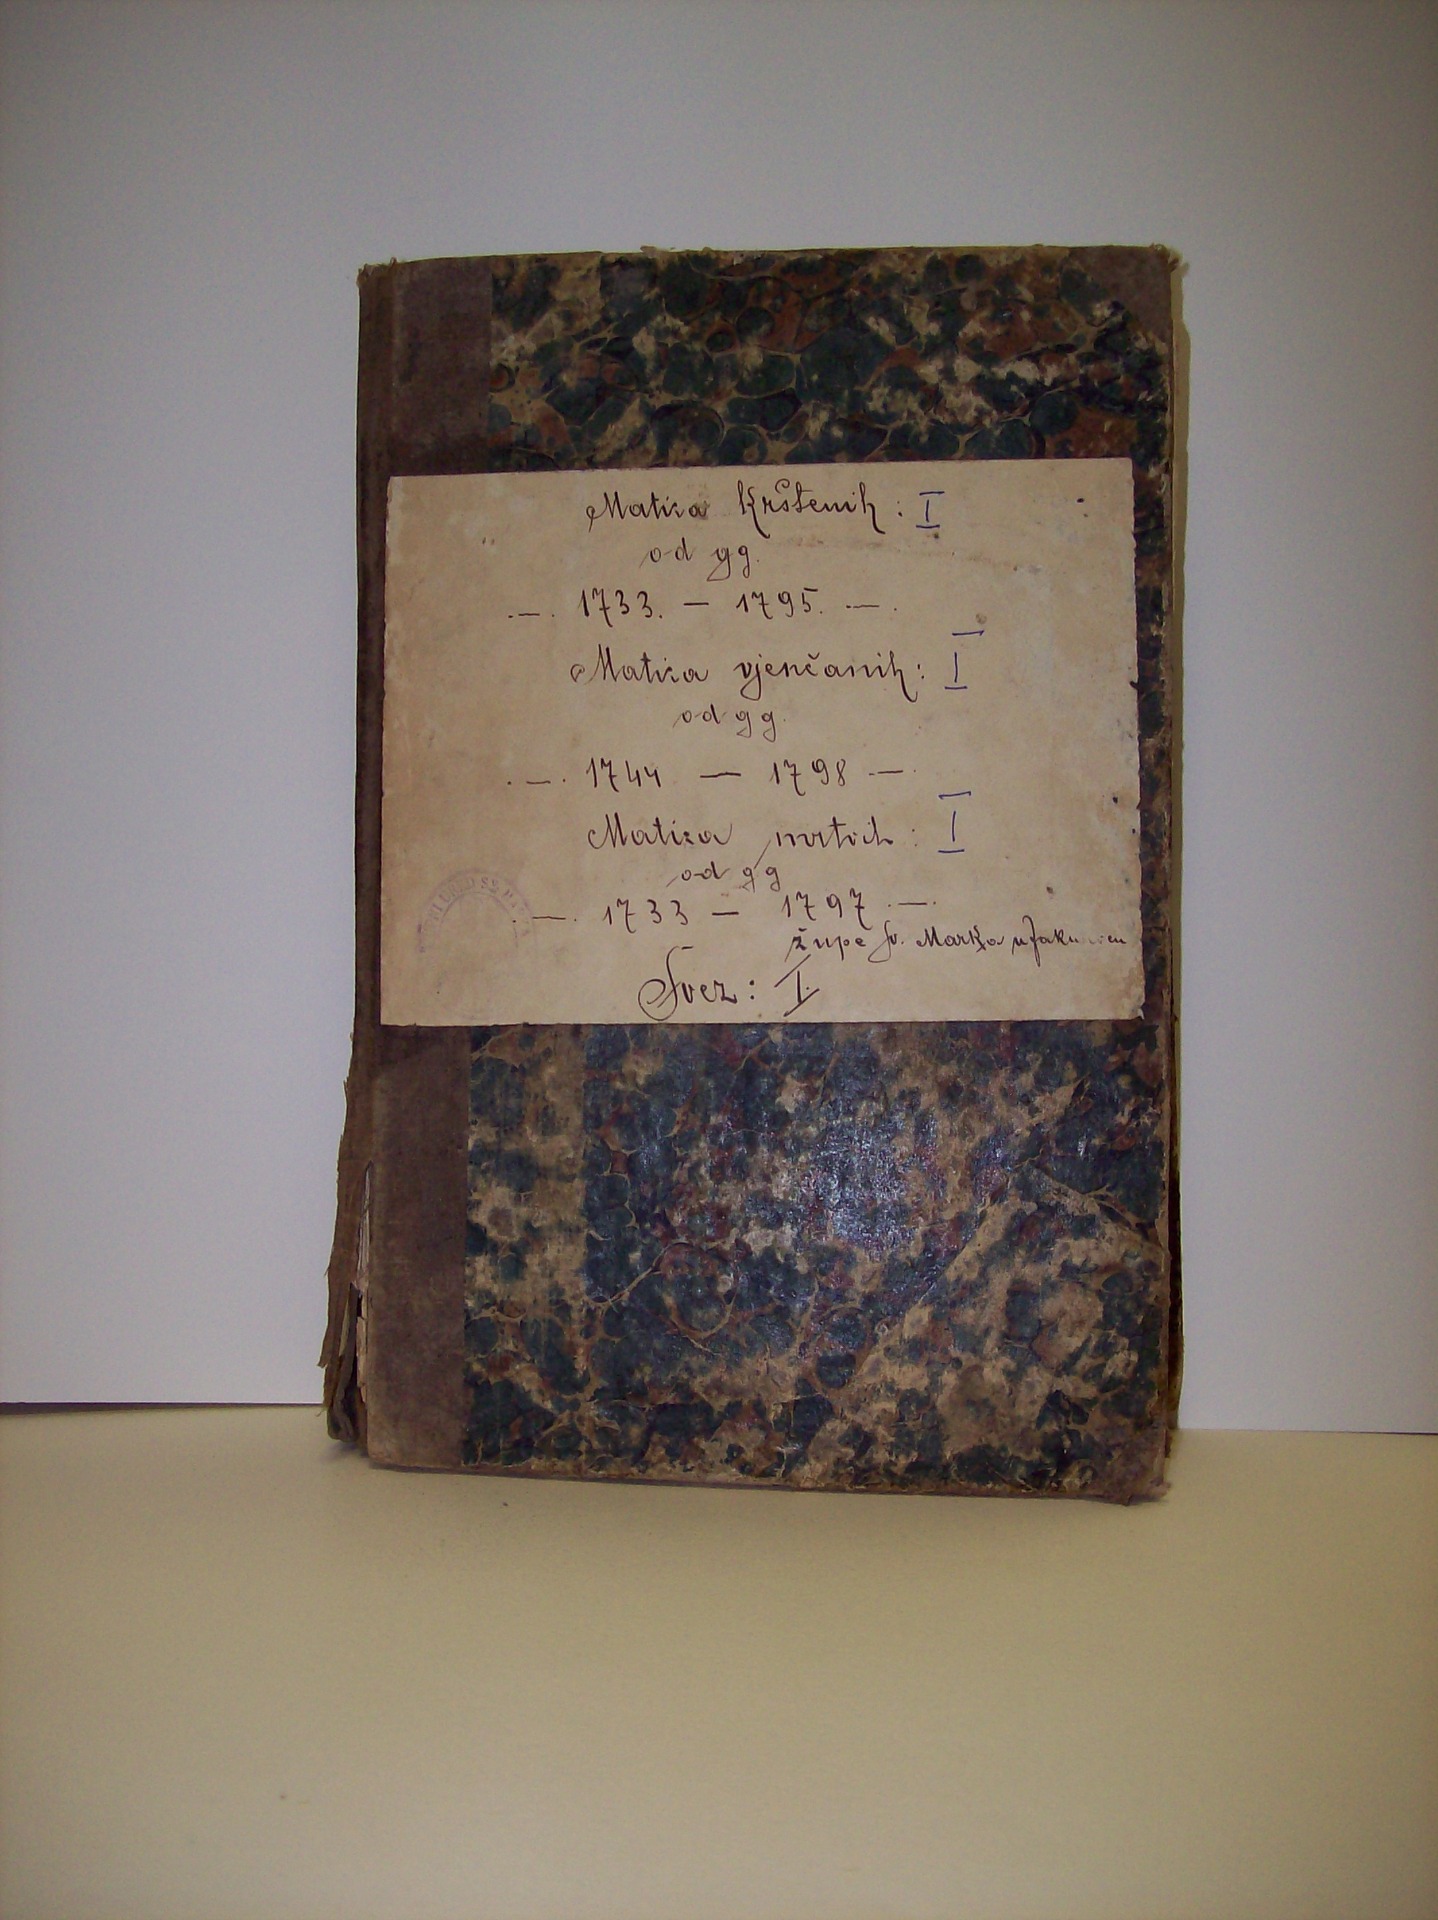 Matica krštenih: I
od gg.
—. 1733. — 1795. —.
Matica vjenčanih: I
od gg.
.—. 1744 — 1798 —.
Matica mrtvih: I
od gg
.—. 1733 — 1797 .—.
župe sv. Marka u
Svez: I.